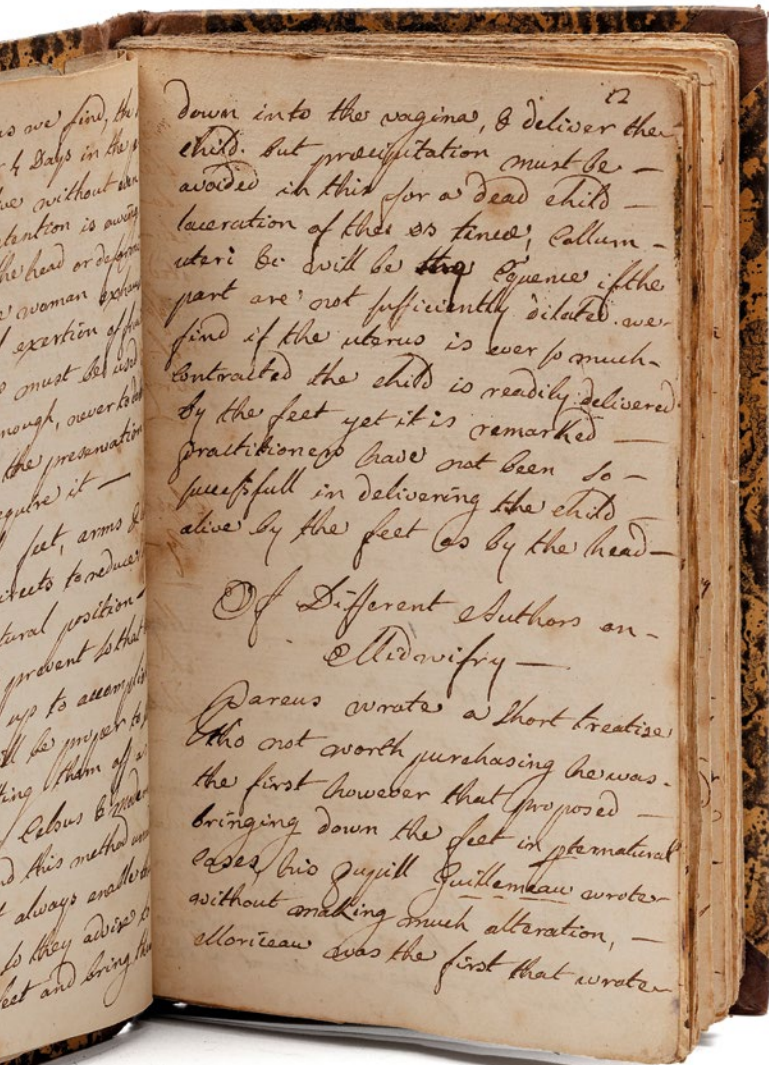 as we find, the
4 Days in the
without
tention is owing
the head or
woman
exertion of
must be used
nough, never to
the preservation
equire it —
feet, arms &
directs to reduce
tural position
prevent so that
up to accomplish
ll be proper to
ting them off
Celsus &
nd this method
always enable
so they advise
feet and bring the
12
down into the vagina, & deliver the
child. but precipitation must be —
avoided in this for a dead child —
laceration of the os tincæ, Collum —
uteri &c will be Cquence if the
part are not sufficiently dilated. we
find if the uterus is ever so much
contracted the child is readily delivered
by the feet yet it is remarked —
practitioners have not been so —
successfull in delivering the child
alive by the feet as by the head —
Of Different Authors on —
Midwifry —
Pareus wrote a short treatise
tho not worth purchasing he was
the first however that proposed —
bringing down the feet in pternatural
cases, his pupill Guillemeau wrote
without making much alteration, —
Moriceau was the first that wrote